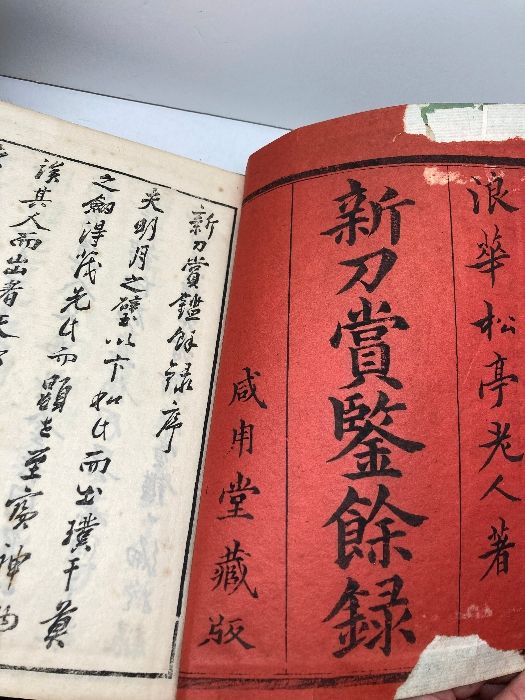 浪華松亭老人著
新刀賞鑒餘録
咸用堂藏版
新刀賞鑑餘録序
夫明月之璧以卞和氏而出璞干莫
之劔得茂先氏而顕
俟其人而出者天